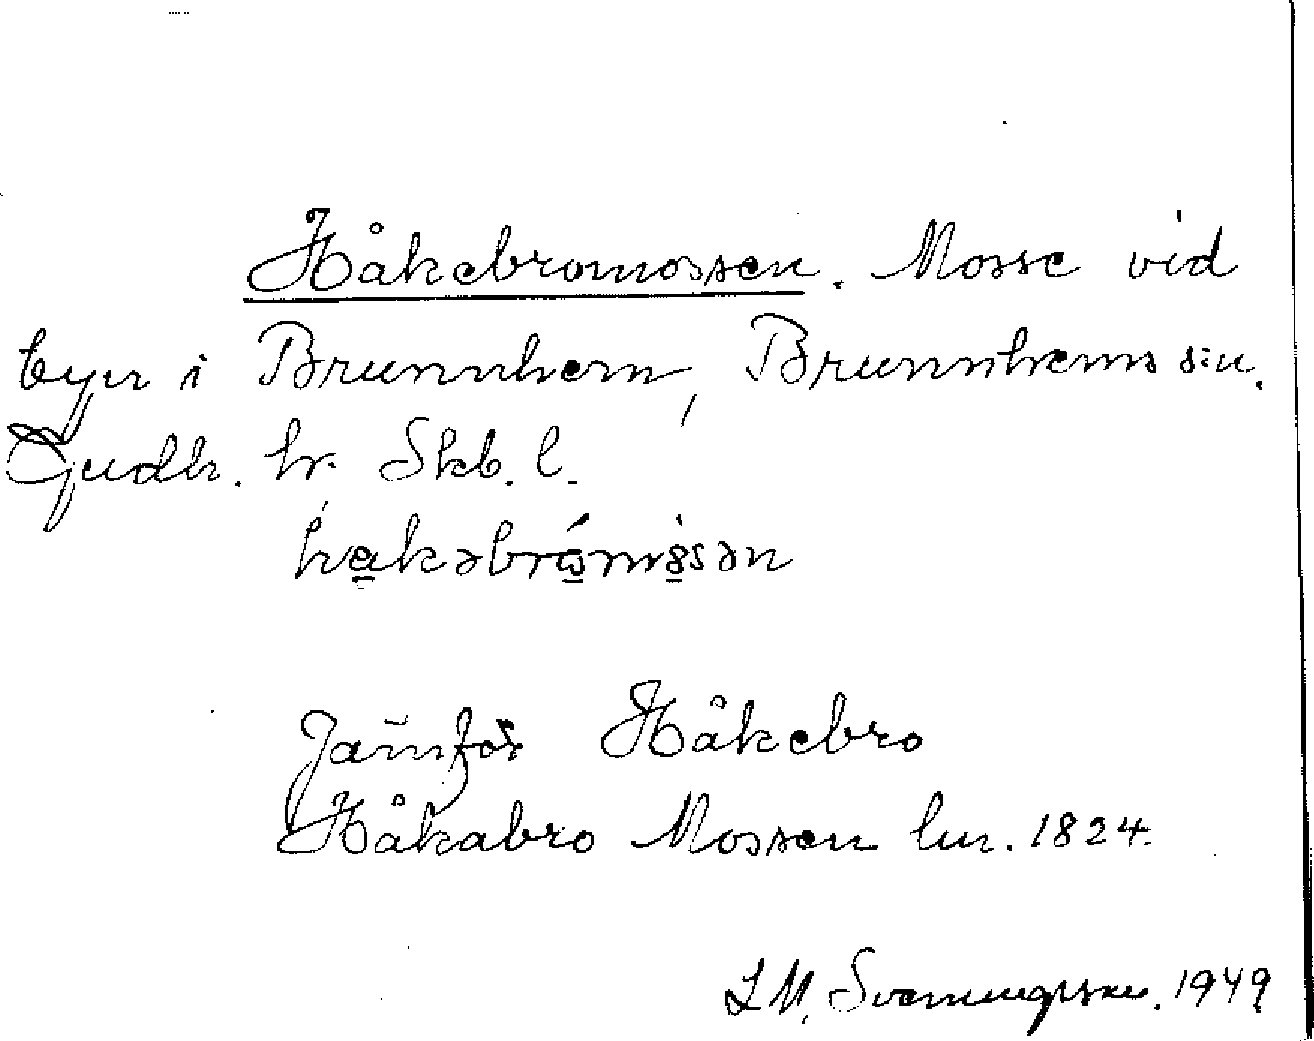 Håkebromossen. Mosse vid
byn i Brunnhem, Brunnhems s:n.
Gudh. hr. Skb. l.
Jämför Håkebro
Håkabro Mossen lm. 1824.
L M. Svenungsson. 1949